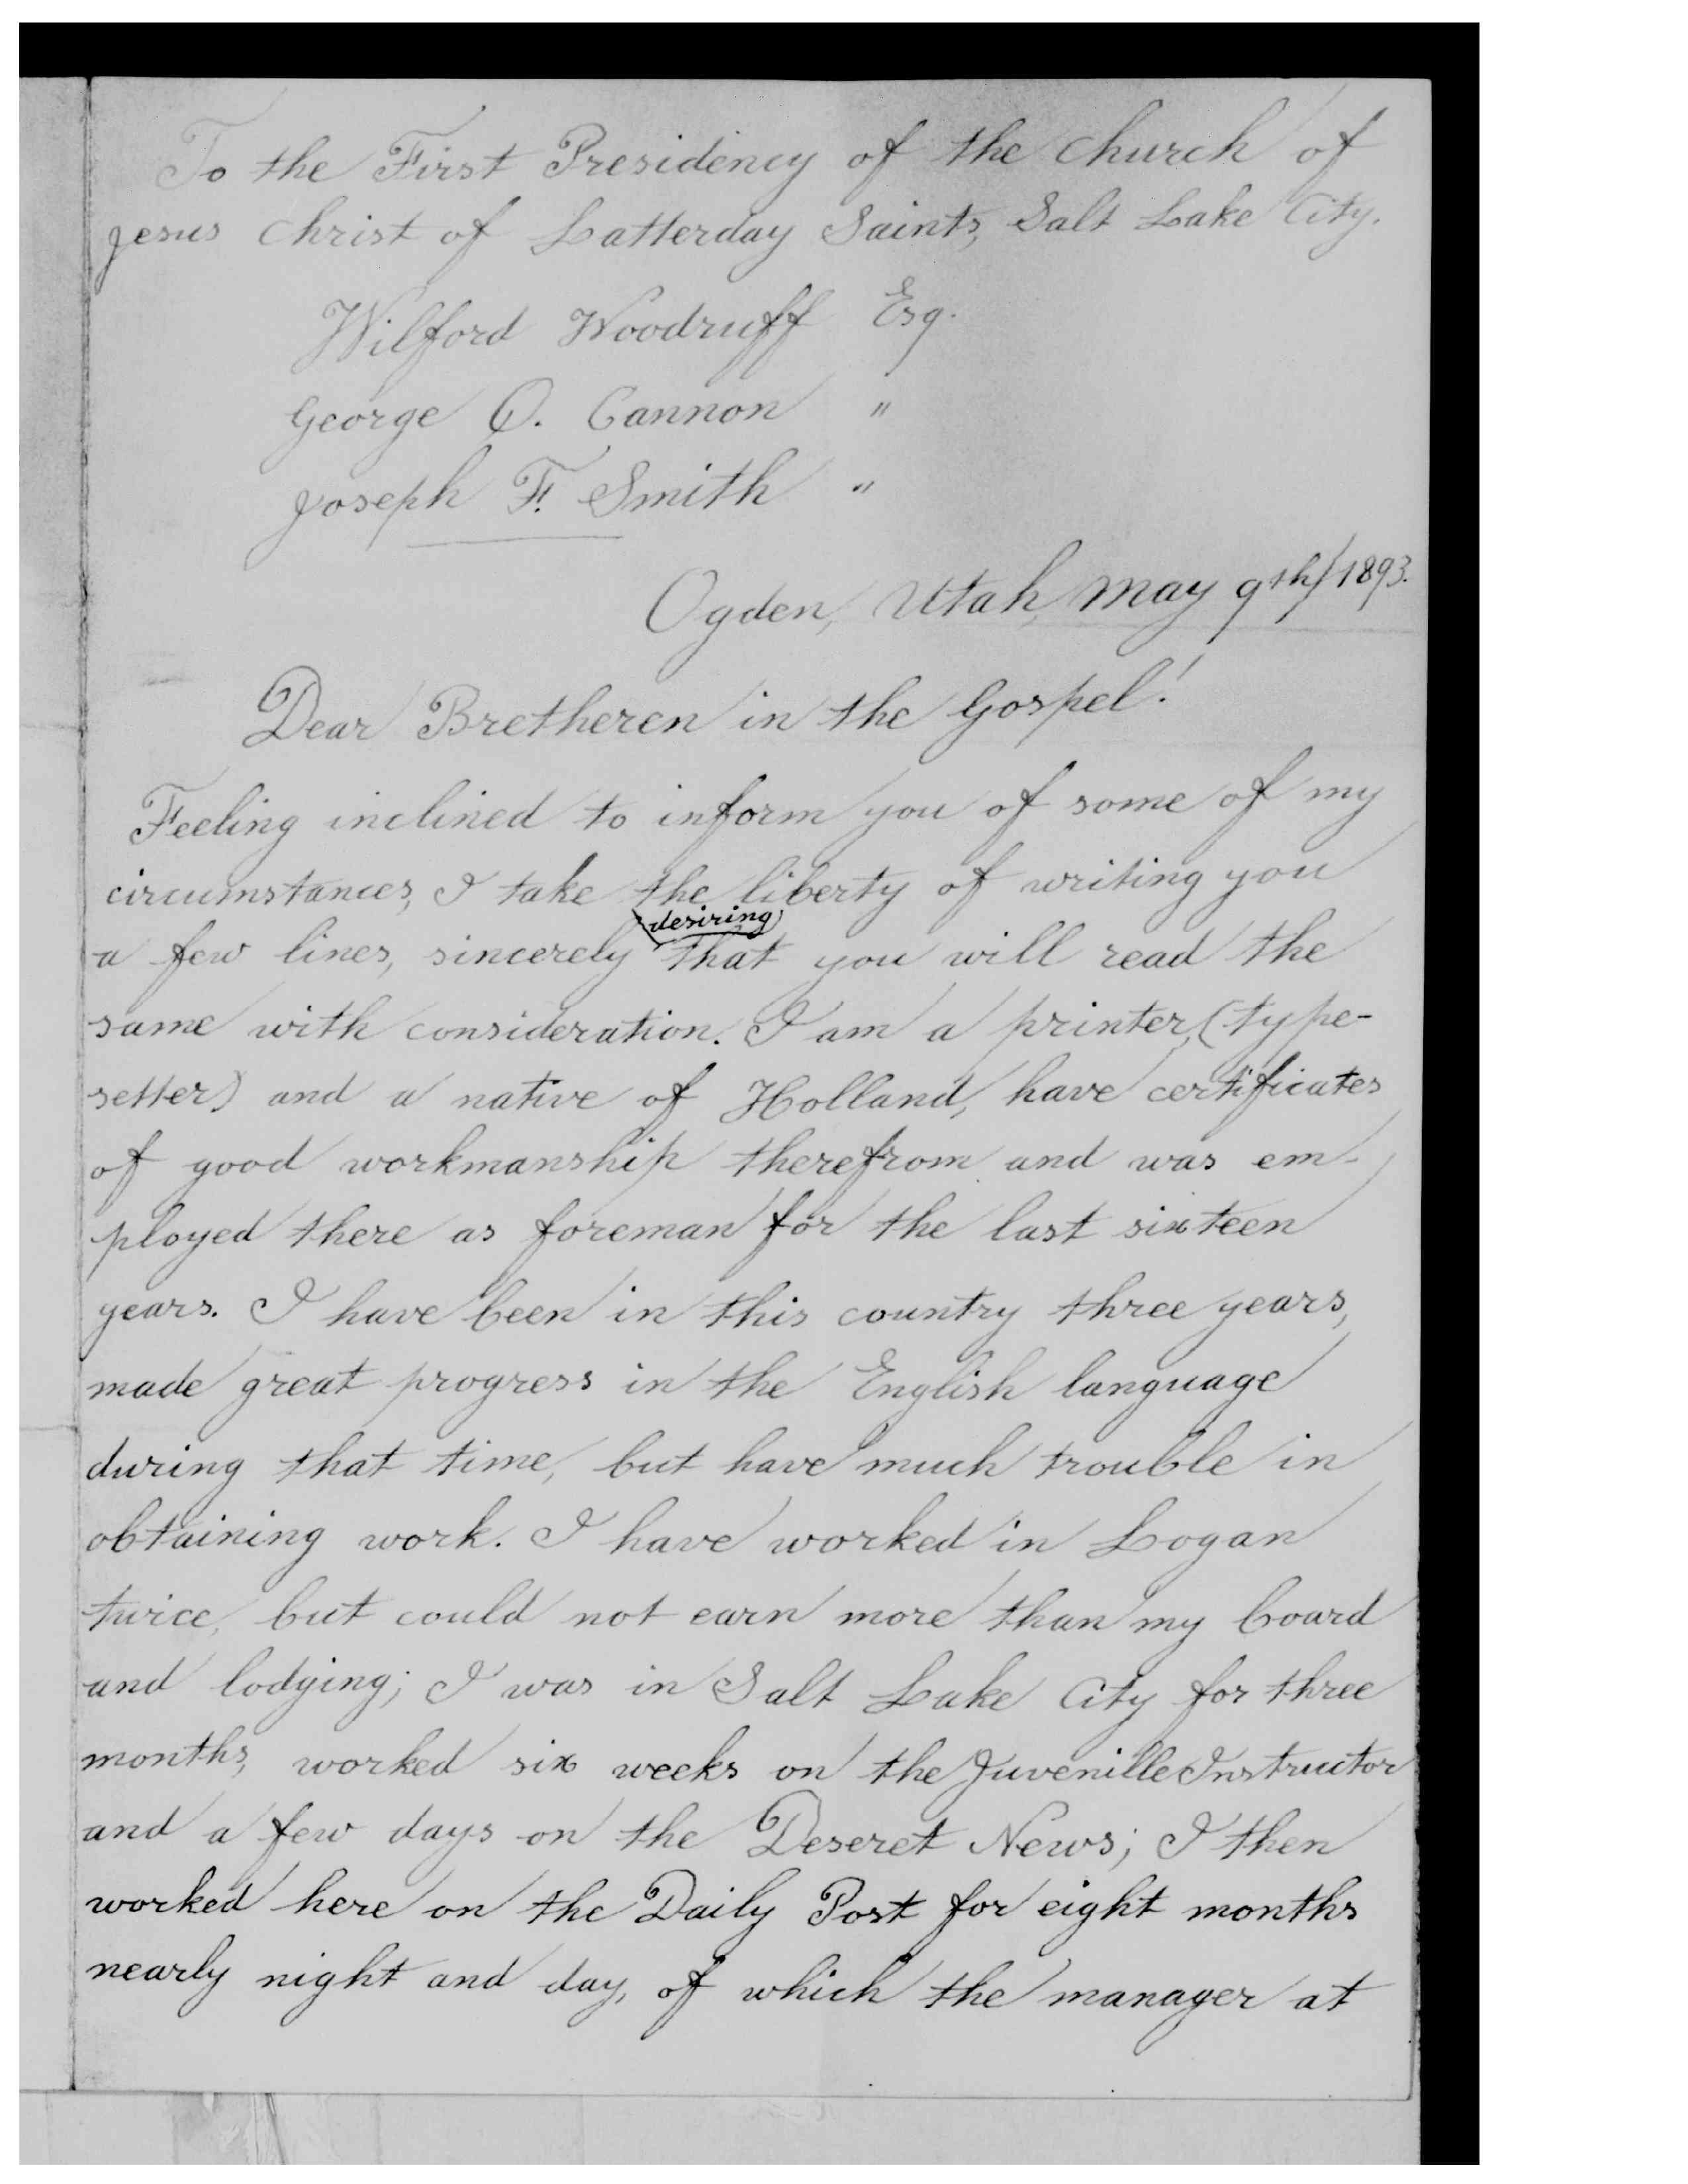 To the First Presidency of the Church of
Jesus Christ of Latterday Saints, Salt Lake City.
Wilford Woodruff Esq.
George Q. Cannon "
Joseph F. Smith "
Ogden, Utah, May 9th/1893.
Dear Bretheren in the Gospel!
Feeling inclined to inform you of some of my
circumstances, I take the liberty of writing you
desiring
a few lines, sincerely that you will read the
same with consideration. I am a printer, (type-
setter) and a native of Holland, have certificates
of good workmanship therefrom and was em-
ployed there as foreman for the last sixteen
years. I have been in this country three years,
made great progress in the English language
during that time, but have much trouble in
obtaining work. I have worked in Logan
twice, but could not earn more than my board
and lodging; I was in Salt Lake City for three
months, worked six weeks on the Juvenille Instructor
and a few days on the Deseret News; I then
worked here on the Daily Post for eight months
nearly night and day, of which the manager at